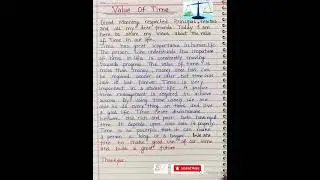 Value Of Time
Good Morning respected Principal, teachers
and all my dear friends. Today I am
here to share my views about the value
of Time in our life.
Time has great importance in human life.
The person who understands the importance
of time in life is constantly moving
towards progress. The value of time is
more than money, money once lost can
be regained sooner or later but time once
lost is lost forever. Time is very
important in a student life. A proper
time management is required to achieve
success. By using time wisely we are
able to do every thing on time and live
a good life. Time never discriminate
between the rich and poor both have equal
time. It depends upon who uses it properly.
Time is so powerful that it can make
a person a king or a beggar. We are
free to make good use of our time
and build a great future.
Thankyou
SUBSCRIBE